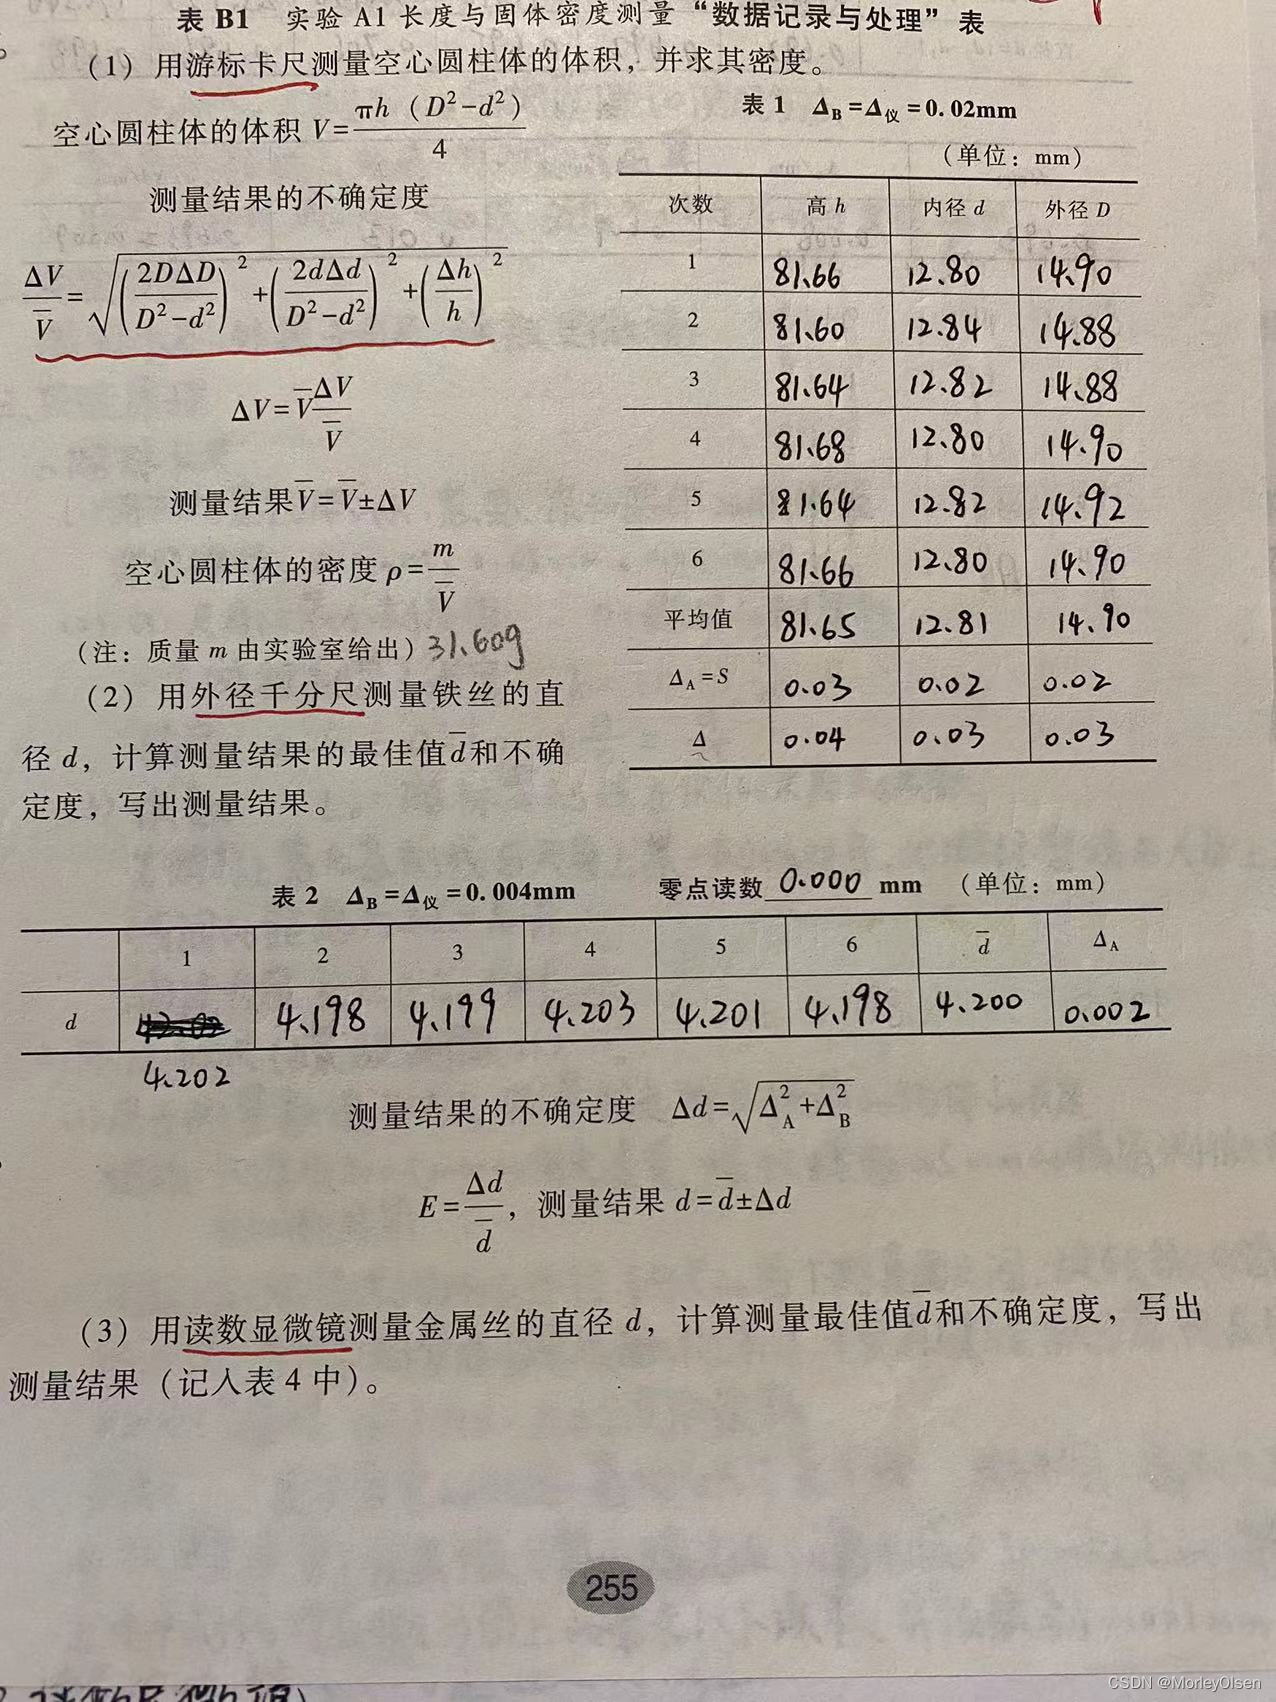 表 B1 实验 A1 长度与固体密度测量“数据记录与处理”表
（1）用游标卡尺测量空心圆柱体的体积，并求其密度。
空心圆柱体的体积 V=πh（D²-d²）/4
测量结果的不确定度
ΔV/V̅=√((2DΔD/(D²-d²))²+(2dΔd/(D²-d²))²+(Δh/h)²)
ΔV=V̅ ΔV/V̅
测量结果V̅=V̅±ΔV
空心圆柱体的密度 ρ=m/V̅
（注：质量 m 由实验室给出）31.60g
表 1 Δ_B=Δ_仪=0.02mm
（单位：mm）
次数 高 h 内径 d 外径 D
1 81.66 12.80 14.90
2 81.60 12.84 14.88
3 81.64 12.82 14.88
4 81.68 12.80 14.90
5 81.64 12.82 14.92
6 81.66 12.80 14.90
平均值 81.65 12.81 14.90
Δ_A=S 0.03 0.02 0.02
Δ 0.04 0.03 0.03
（2）用外径千分尺测量铁丝的直
径 d，计算测量结果的最佳值d̅和不确
定度，写出测量结果。
表 2 Δ_B=Δ_仪=0.004mm 零点读数 0.000 mm （单位：mm）
1 2 3 4 5 6 d̅ Δ_A
d 4.198 4.199 4.203 4.201 4.198 4.200 0.002
4.202
测量结果的不确定度 Δd=√(Δ_A²+Δ_B²)
E=Δd/d̅，测量结果 d=d̅±Δd
（3）用读数显微镜测量金属丝的直径 d，计算测量最佳值d̅和不确定度，写出
测量结果（记入表 4 中）。
255
CSDN @MorleyOlsen